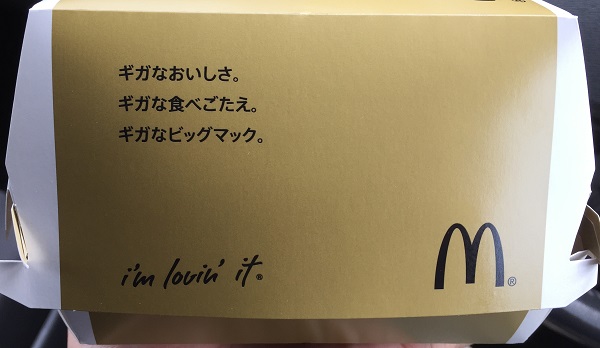 ギガなおいしさ。
ギガな食べごたえ。
ギガなビッグマック。
i'm lovin' it®
M®